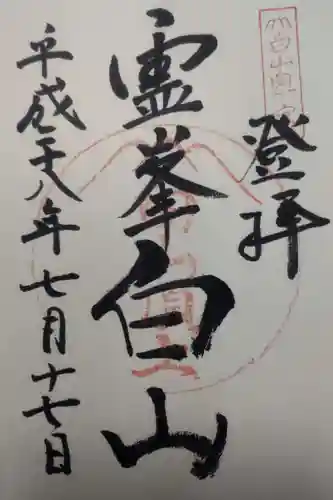 登拝
霊峯白山
平成二十八年七月十七日